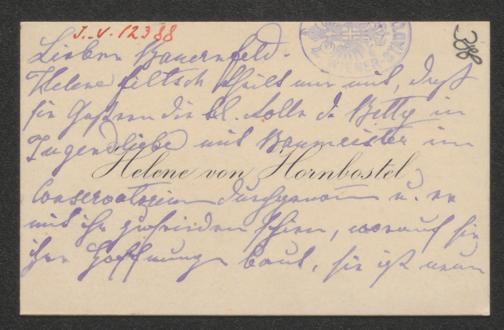 J. N. 12388
388
Lieber Bauernfeld.
Helene Teltsch theilt mir mit, daß
sie gestern die kl. Rolle d. Betty in
Jugendliebe mit Baumeister im
Helene von Hornbostel
Conservatorium durchgenom u. er
mit ihr zufrieden schien, worauf sie
ihre Hoffnung baut, sie ist nun